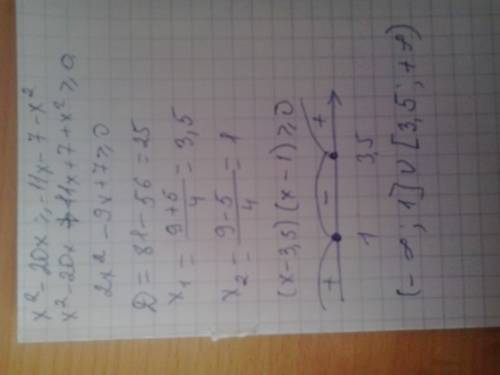 x² - 20x ≥ -11x - 7 - x²
x² - 20x + 11x + 7 + x² ≥ 0
2x² - 9x + 7 ≥ 0
D = 81 - 56 = 25
x₁ = (9+5)/4 = 3,5
x₂ = (9-5)/4 = 1
(x-3,5)(x-1) ≥ 0
+ - +
1 3,5
(-∞; 1] ∪ [3,5; +∞)